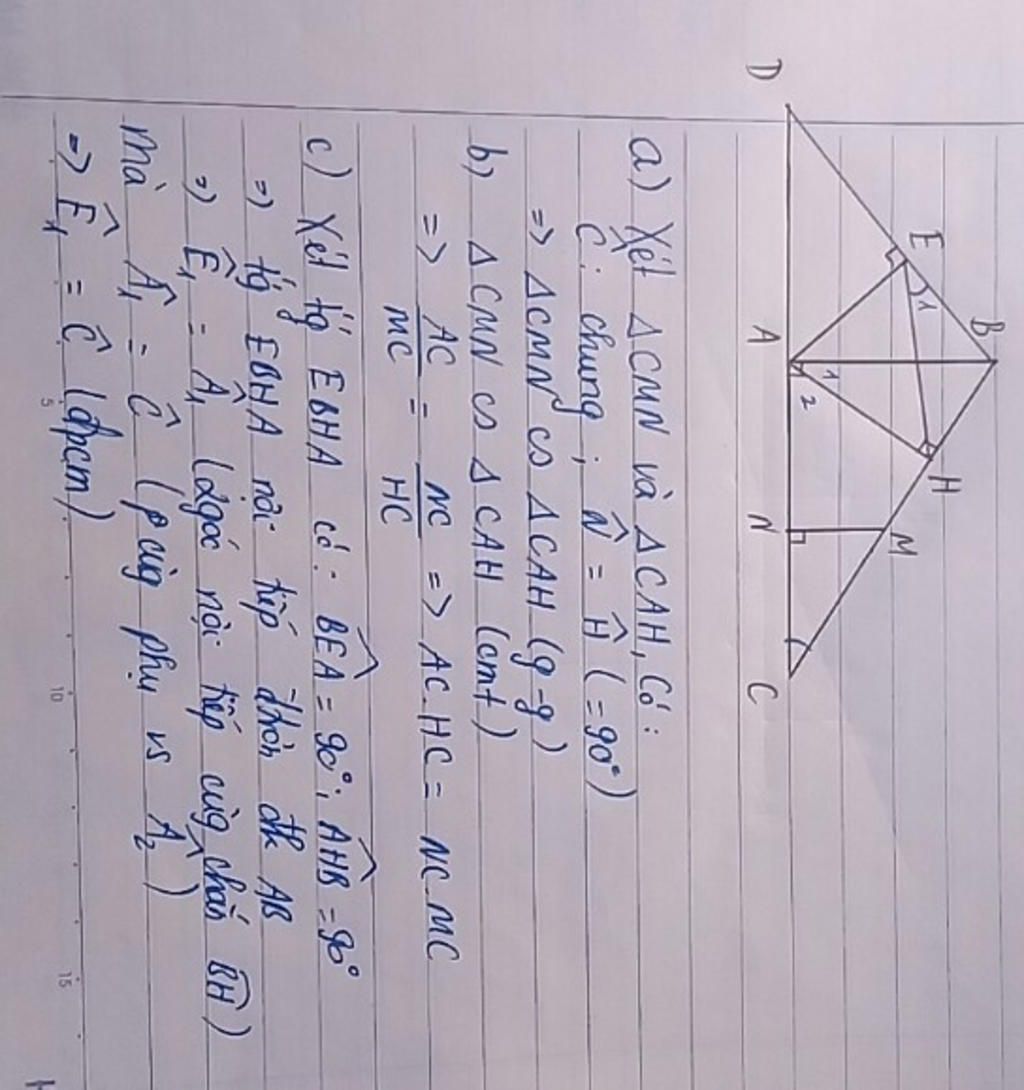 D E B A H N M C
1 1 2
a) Xét ΔCMN và ΔCAH, Có:
Ĉ: chung ; N̂ = Ĥ (= 90°)
=> ΔCMN ∽ ΔCAH (g-g)
b) ΔCMN ∽ ΔCAH (cmt)
=> AC/MC = NC/HC => AC.HC = NC.MC
c) Xét tg EBHA có: BEA = 90°; AHB = 90°
=> tg EBHA nội tiếp đtròn đk AB
=> Ê₁ = Â₁ (2góc nội tiếp cùng chắn BH)
mà Â₁ = Ĉ (cùng phụ vs Â₂)
=> Ê₁ = Ĉ (đpcm)
5 10 15